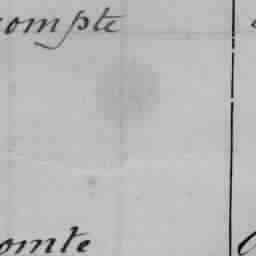 compte
omte